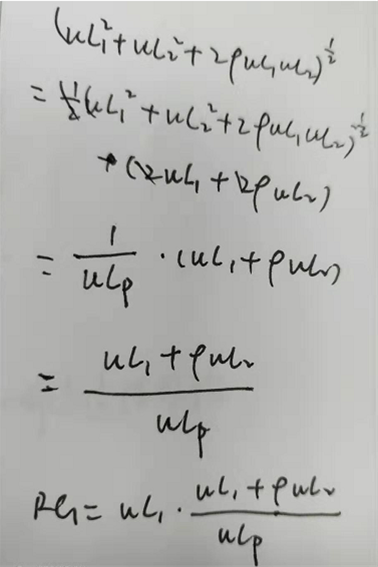 (UL₁²+UL₂²+2ρUL₁UL₂)^½
= ½(UL₁²+UL₂²+2ρUL₁UL₂)^-½
·(2UL₁+2ρUL₂)
= 1/ULp ·(UL₁+ρUL₂)
= UL₁+ρUL₂ / ULp
RC₁= UL₁· UL₁+ρUL₂ / ULp